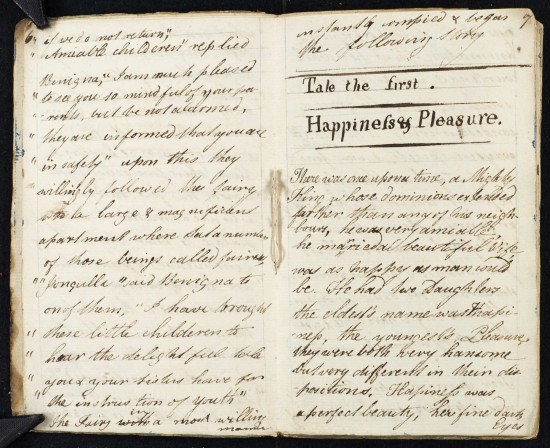 6
" if we do not return,"
" Amiable childeren" replied
Benigna, "I am much pleased
" to see you so mindful of your pa-
" rents, but be not alarmed,
" they are informed that you are
" in safety" upon this they
willingly followed the fairy
into a large & magnificent
apartment where sat a number
of those beings called fairies
"Jonquille" said Benigna to
one of them, "I have brought
" these little childeren to
" hear the delightfull tale
" you & your sisters have for
" the instruction of youth"
The Fairy in a most willing
manner
7
instantly complied & began
the following story
Tale the first.
Happiness & Pleasure.
There was once upon a time, a Mighty
King whose dominions extended
farther than any of his neigh-
bours, he was very amiable
he married a beautiful Wife
was as happy as man could
be. He had two Daughters
the eldest's name was Happi-
ness, the youngest's Pleasure,
they were both very hansome
but very different in their dis
positions, Happiness was
a perfect beauty, her fine dark
eyes